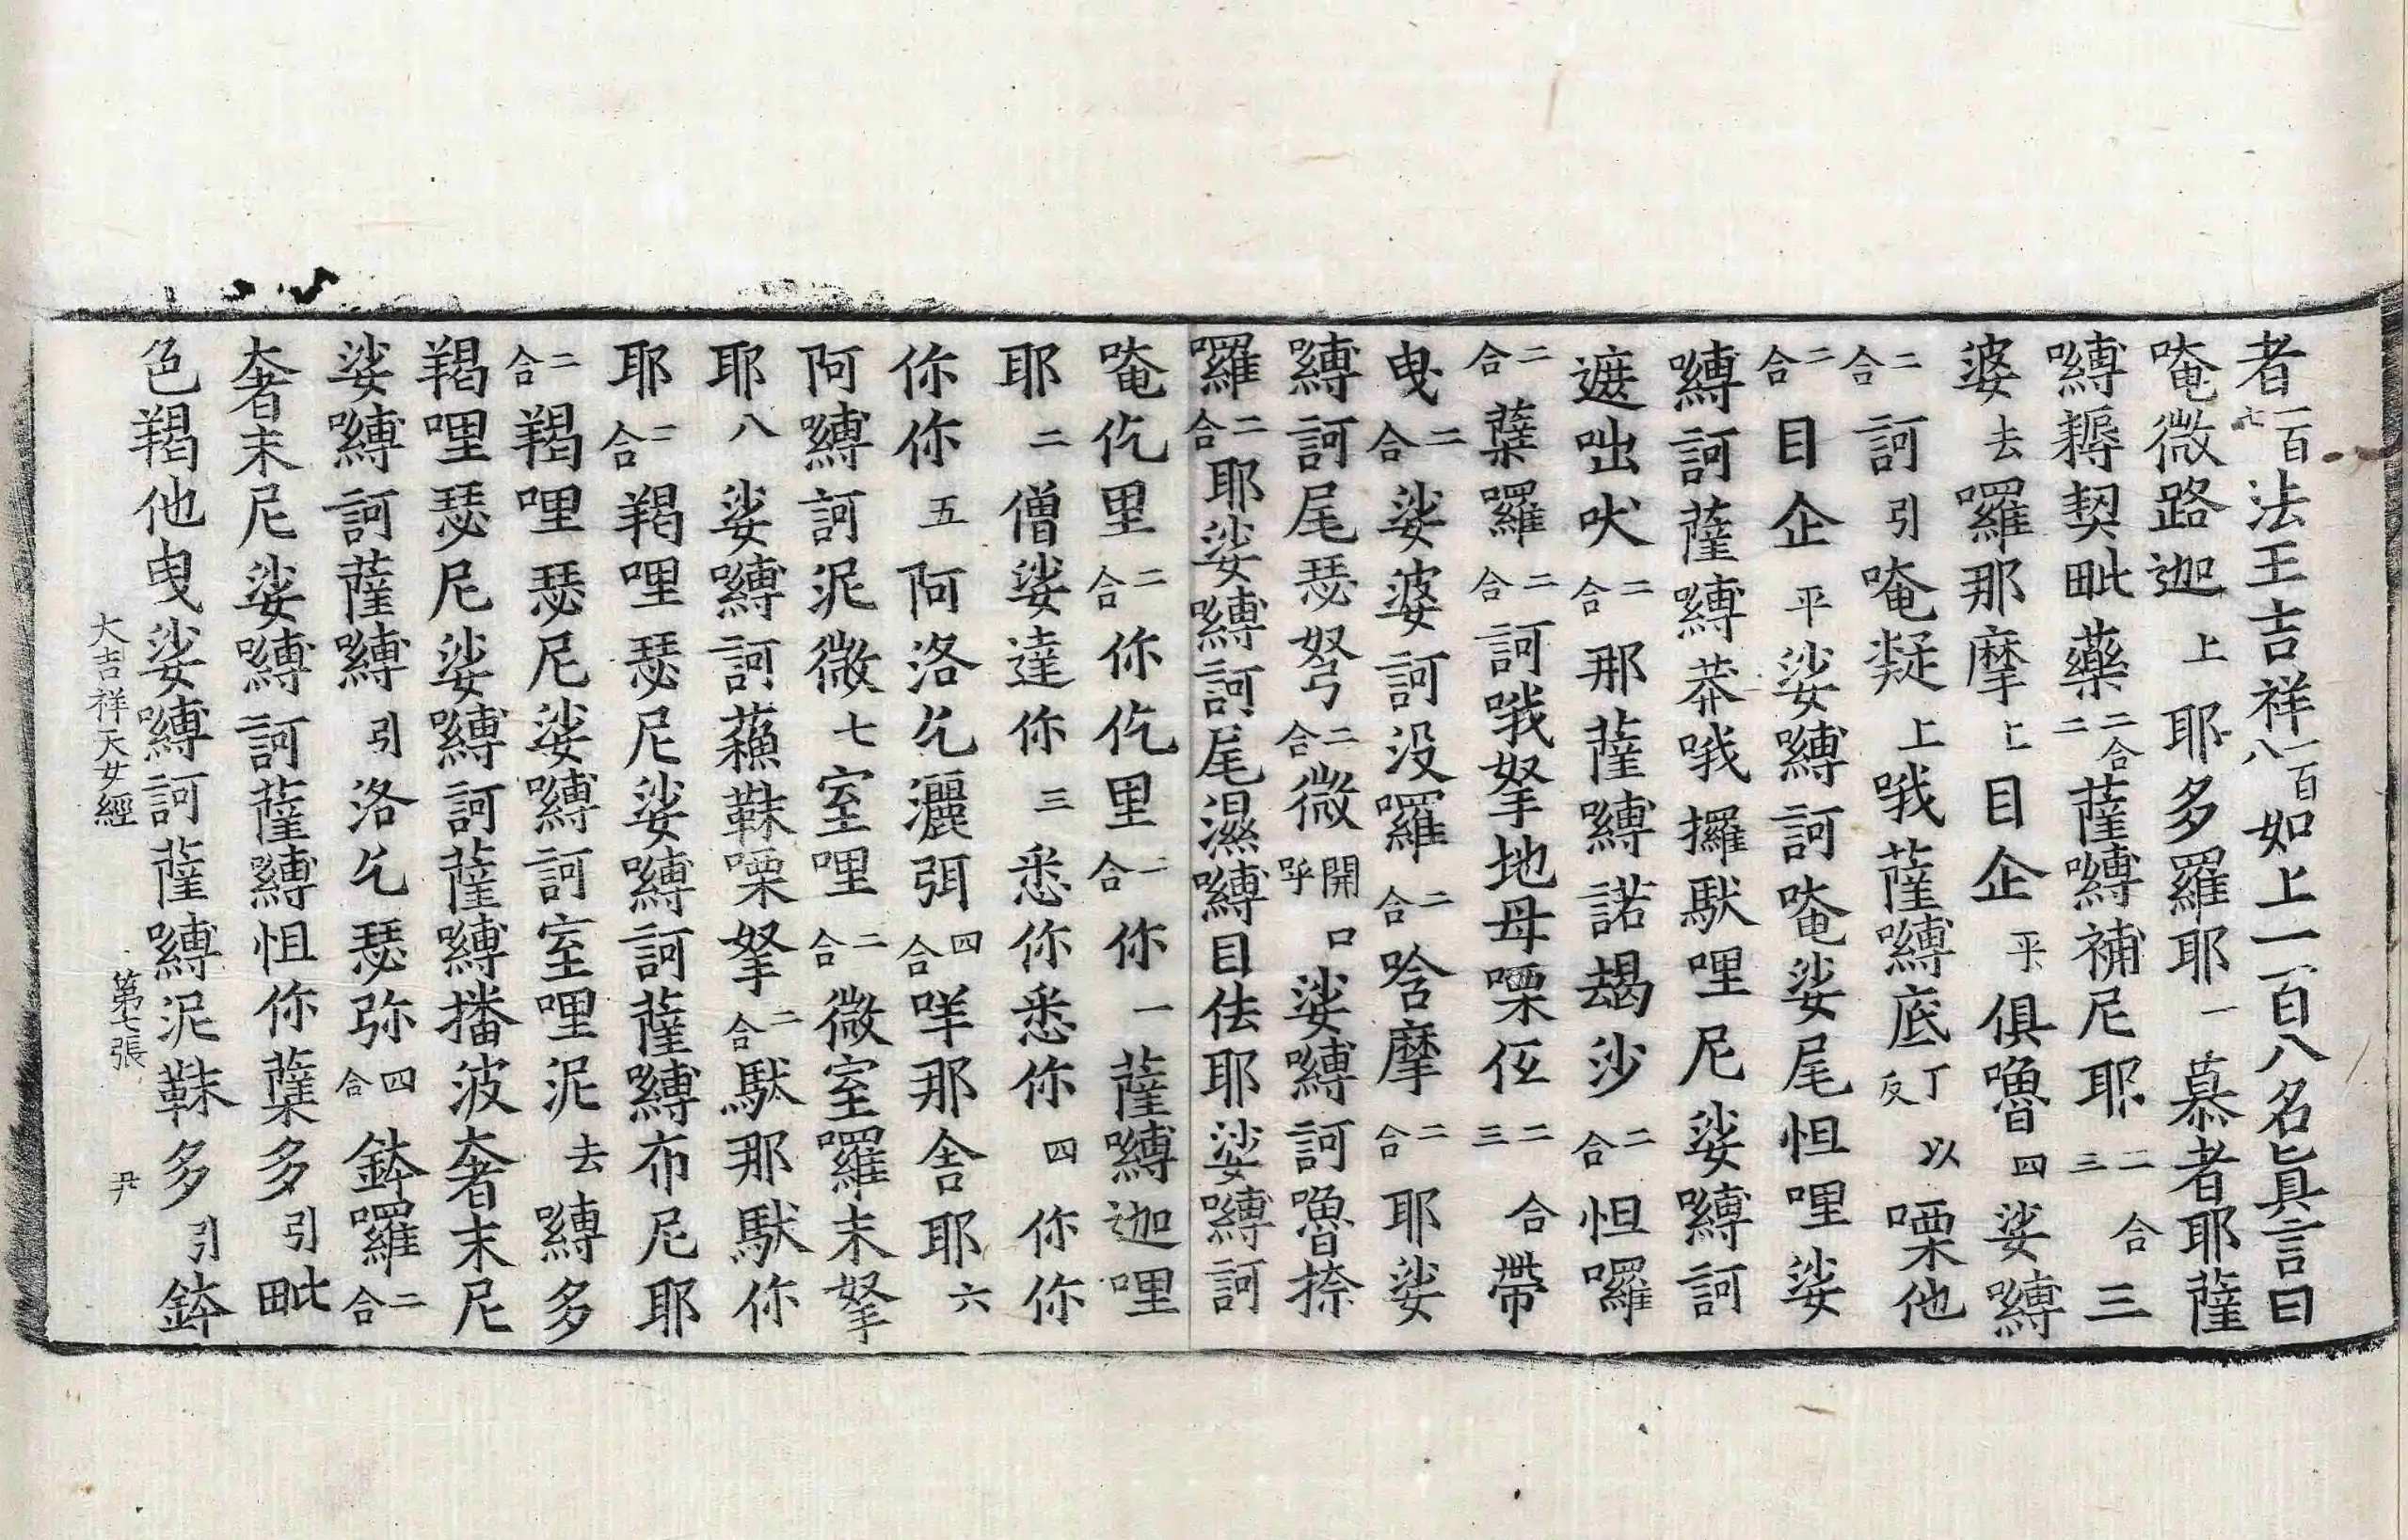 者一百七法王吉祥一百八如上一百八名眞言曰
唵微路迦上耶多羅耶一慕者耶薩
嚩耨契毗藥二合二薩嚩補尼耶二合三三
婆去囉那摩上目企平俱嚕四娑嚩
二合訶引唵㘈上哦薩嚩底丁以反㗚他
二合目企平娑嚩訶唵娑尾怛哩娑
嚩訶薩嚩莽哦攞馱哩尼娑嚩訶
遮咄吠二合那薩嚩諾朅沙二合怛囉
二合蘖囉二合訶哦拏地母㗚二合三帶
曳二合娑婆訶没囉二合唅摩二合耶娑
嚩訶尾瑟弩二合微開口呼娑嚩訶嚕捺
囉二合耶娑嚩訶尾濕嚩目佉耶娑嚩訶
唵仡里二合你仡里二合你一薩嚩迦哩
耶二僧娑達你三悉你悉你四你你
你你五阿洛乞灑弭四合咩那舍耶六
阿嚩訶泥微七室哩二合微室囉末拏
耶八娑嚩訶蘓靺㗚拏二合馱那馱你
耶二合羯哩瑟尼娑嚩訶薩嚩布尼耶
二合羯哩瑟尼娑嚩訶室哩泥去嚩多
羯哩瑟尼娑嚩訶薩嚩播波奢末尼
娑嚩訶薩嚩引洛乞瑟弥四合鉢囉二合
奢末尼娑嚩訶薩嚩怛你蘖多引毗
色羯他曳娑嚩訶薩嚩泥靺多引鉢
大吉祥天女經 第七張 尹